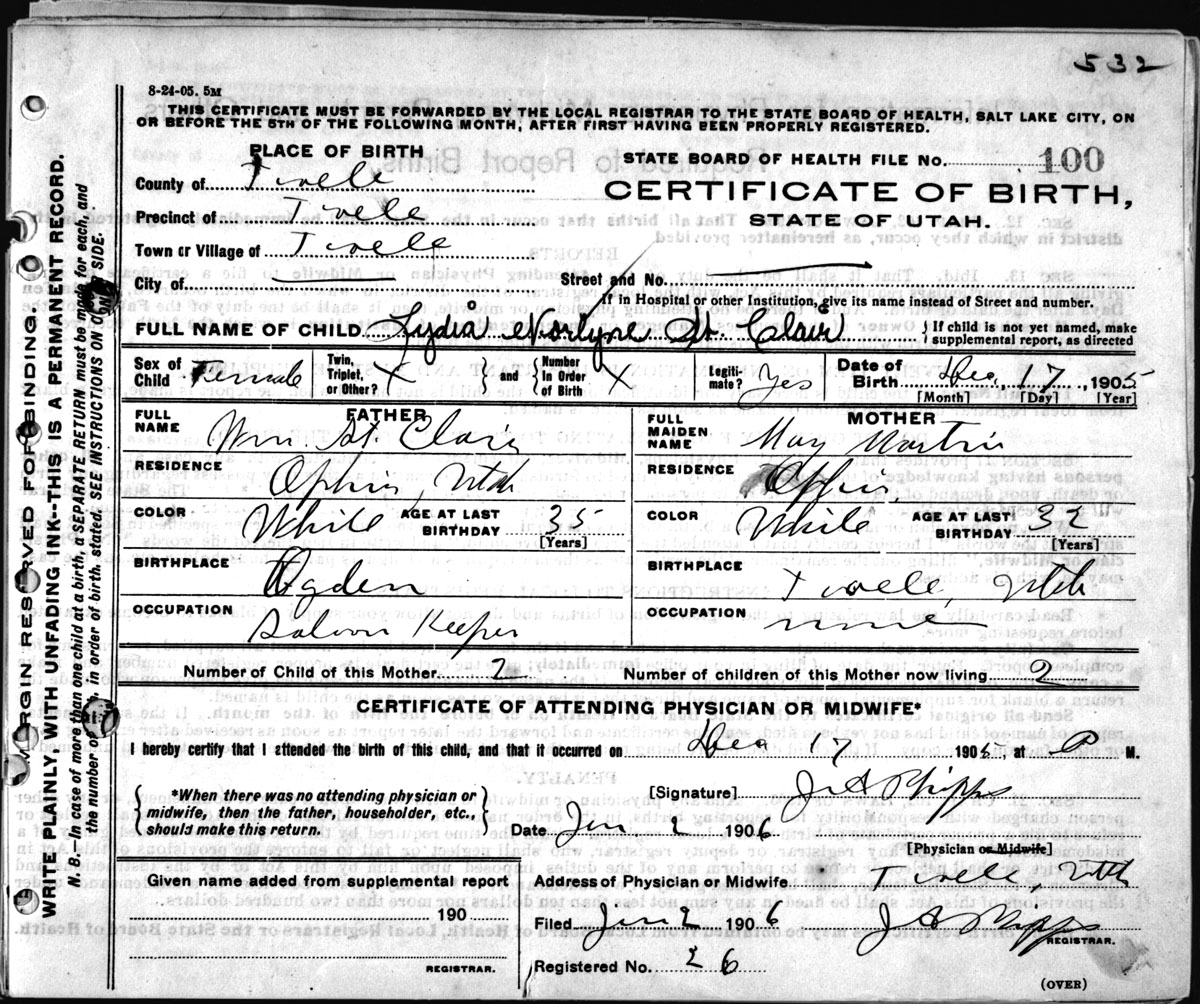 532
8-24-05. 5M
THIS CERTIFICATE MUST BE FORWARDED BY THE LOCAL REGISTRAR TO THE STATE BOARD OF HEALTH, SALT LAKE CITY, ON
OR BEFORE THE 5TH OF THE FOLLOWING MONTH, AFTER FIRST HAVING BEEN PROPERLY REGISTERED.
PLACE OF BIRTH
STATE BOARD OF HEALTH FILE No. 100
County of Tooele
CERTIFICATE OF BIRTH,
Precinct of Tooele
STATE OF UTAH.
Town or Village of Tooele
City of
Street and No.
If in Hospital or other Institution, give its name instead of Street and number.
FULL NAME OF CHILD Lydia Norlyne St. Clair
If child is not yet named, make supplemental report, as directed
Sex of Child Female
Twin, Triplet, or Other? X and Number in Order of Birth X
Legitimate? Yes
Date of Birth Dec 17, 1905
[Month] [Day] [Year]
FATHER
FULL NAME Wm St. Clair
RESIDENCE Ophir, Utah
COLOR White AGE AT LAST BIRTHDAY 35 [Years]
BIRTHPLACE Ogden
OCCUPATION Saloon Keeper
MOTHER
FULL MAIDEN NAME May Martin
RESIDENCE Ophir
COLOR White AGE AT LAST BIRTHDAY 32 [Years]
BIRTHPLACE Tooele, Utah
OCCUPATION none
Number of Child of this Mother 2 Number of children of this Mother now living 2
CERTIFICATE OF ATTENDING PHYSICIAN OR MIDWIFE*
I hereby certify that I attended the birth of this child, and that it occurred on Dec 17 1905, at M.
*When there was no attending physician or
midwife, then the father, householder, etc.,
should make this return.
[Signature] J A Phipps
Date Jan 2 1906
[Physician or Midwife]
Given name added from supplemental report
190
REGISTRAR.
Address of Physician or Midwife Tooele, Utah
Filed Jan 2 1906 J A Phipps
REGISTRAR.
Registered No. 26
(OVER)
MARGIN RESERVED FOR BINDING.
WRITE PLAINLY WITH UNFADING INK--THIS IS A PERMANENT RECORD.
N. B.—In case of more than one child at a birth, a SEPARATE RETURN must be made for each, and
the number of each, in order of birth, stated. SEE INSTRUCTIONS ON SIDE.